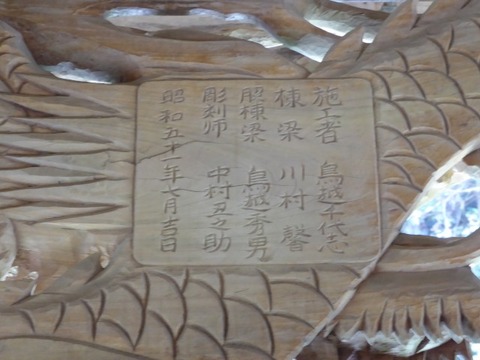 施工者 鳥越千代志
棟梁 川村馨
脇棟梁 鳥越秀男
彫刻师 中村忍之助
昭和五十一年七月吉日